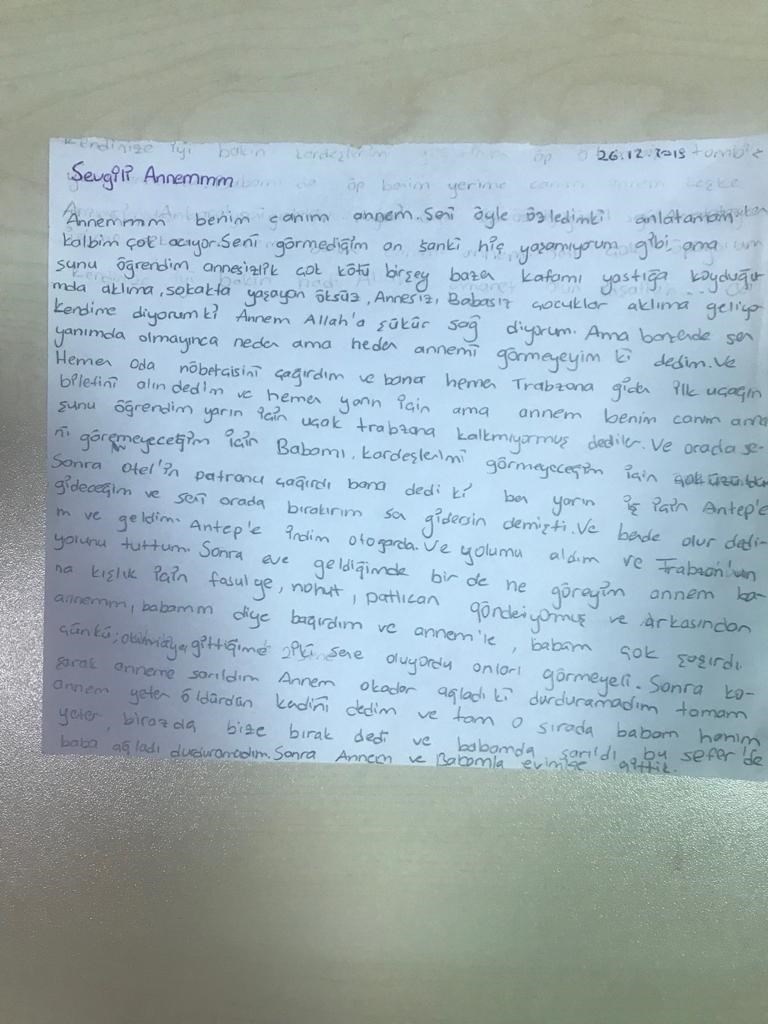 26.12.2019
Sevgili Annemmm
Annemmm benim canım annem. Seni öyle özledimki anlatamam
kalbim çok acıyor. Seni görmediğim an sanki hiç yaşamıyorum gibi ama
şunu öğrendim annesizlik çok kötü birşey bazen kafamı yastığa koyduğu-
mda aklıma, sokakta yaşayan öksüz, Annesiz, Babasız çocuklar aklıma geliyo
kendime diyorumki Annem Allah'a şükür sağ diyorum. Ama bazende sen
yanımda olmayınca neden ama neden annemi görmeyeyim ki dedim. Ve
Hemen oda nöbetçisini çağırdım ve bana hemen Trabzona giden ilk uçağın
biletini alın dedim ve hemen yarın için ama annem benim canım ana
şunu öğrendim yarın için uçak trabzona kalkmıyormuş dediler. Ve orada se-
ni göremeyeceğim için Babamı, kardeşlerimi görmeyeceğim için
Sonra Otel'in patronu çağırdı bana dedi ki ben yarın iş için Antep'e
gideceğim ve seni orada bırakırım sen gidersin demişti. Ve bende olur dedi-
m ve geldim. Antep'e indim otogarda. Ve yolumu aldım ve Trabzon'un
yolunu tuttum. Sonra eve geldiğimde bir de ne göreyim annem ba-
na kışlık için fasulye, nohut, patlıcan gönderiyomuş ve arkasından
annemm, babamm diye bağırdım ve annem'le, babam çok şaşırdı
çünkü; gittiğime iki sene oluyordu onları görmeyeli. Sonra ko-
şarak anneme sarıldım Annem okadar ağladı ki durduramadım tamam
annem yeter öldürdün kadını dedim ve tam o sırada babam hanım
yeter, birazda bize bırak dedi ve babamda sarıldı bu sefer'de
baba ağladı durduramadım. Sonra Annem ve Babamla evimize gittik.